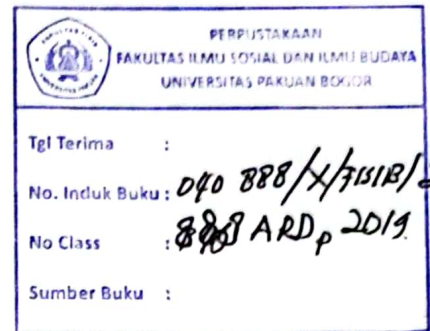 PERPUSTAKAAN
FAKULTAS ILMU SOSIAL DAN ILMU BUDAYA
UNIVERSITAS PAKUAN BOGOR
Tgl Terima :
No. Induk Buku : 040 888/X/FISIB/
No Class : ARD p 2019
Sumber Buku :